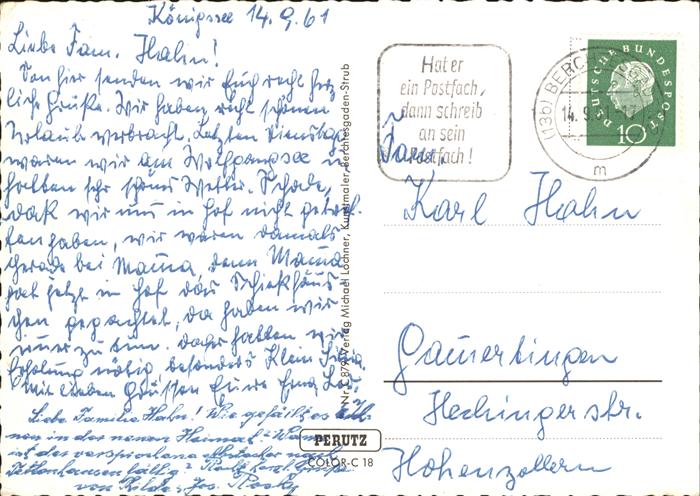 Königssee 14.9.61
Liebe Fam. Hahn!
Von hier senden wir Euch recht herz
liche Grüße. Wir haben recht schönen
Urlaub verbracht. Letzten Dienstag
waren wir am Wolfgangsee u.
hatten sehr schönes Wetter. Schade,
daß wir uns in Hof nicht getrof-
fen haben, wir waren damals
gerade bei Mama, denn Mama
hat jetzt in Hof das Schiekhäus
chen gepachtet, da haben wir
immer zu tun. daher hatten wir
Erholung nötig besonders Klein
Mit lieben Grüssen Eure Erna
Liebe Familie Hahn! Wie gefällt es
nen in der neuen Heimat? Wann
ist der versprochene nach
fällig?
von
Hat er
ein Postfach,
dann schreib
an sein
Postfach!
(13b) BERCHTESGADEN
14.9.61-17
m
DEUTSCHE BUNDESPOST
10
Fam.
Karl Hahn
Gammertingen
Hechinger str.
Hohenzollern
Nr. C 879 Verlag Michael Lochner, Kunstmaler, Berchtesgaden-Strub
PERUTZ
COLOR-C 18